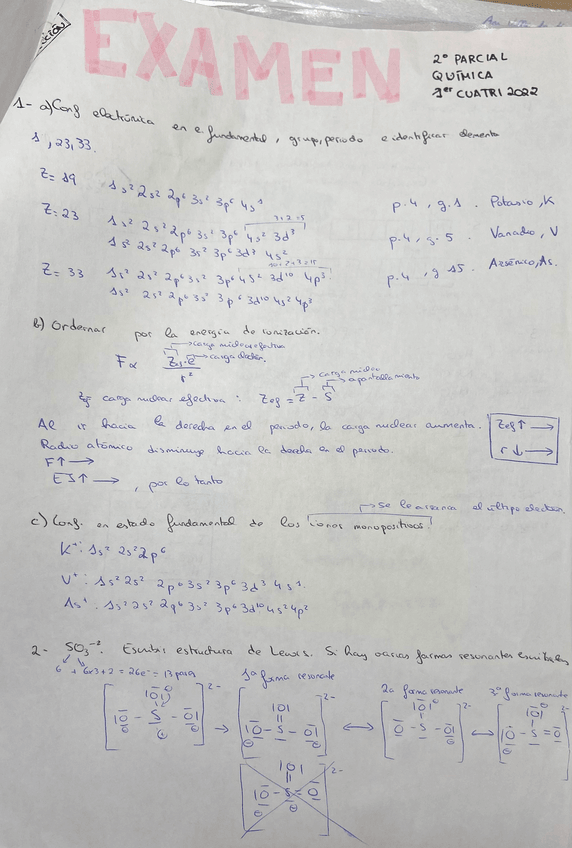 EXAMEN
2º PARCIAL
QUÍMICA
1er CUATRI 2022
1- a) Conf electrónica en e fundamental, grupo, periodo e identificar elemento
1 , 23, 33.
Z= 19 1s² 2s² 2p⁶ 3s² 3p⁶ 4s¹ p.4, g.1. Potasio, K
3+2=5
Z=23 1s² 2s² 2p⁶ 3s² 3p⁶ 4s² 3d³ p.4, g.5. Vanadio, V
1s² 2s² 2p⁶ 3s² 3p⁶ 3d³ 4s²
10+2+3=15
Z= 33 1s² 2s² 2p⁶ 3s² 3p⁶ 4s² 3d¹⁰ 4p³ p.4, g 15. Arsénico, As.
1s² 2s² 2p⁶ 3s² 3p⁶ 3d¹⁰ 4s² 4p³
b) Ordernar por la energía de ionización.
carga nuclear efectiva
F∝ Zef·e carga
r²
Zef carga nuclear efectiva: Zef = Z - S
carga nuclear
apantallamiento
Al ir hacia la derecha en el periodo, la carga nuclear aumenta.
Radio atómico disminuye hacia la derecha en el periodo.
F↑ →
EI↑ → , por lo tanto
Zef↑ →
r ↓ →
se le arranca el último electrón.
c) Conf. en estado fundamental de los iones monopositivos
K⁺: 1s² 2s² 2p⁶
V⁺: 1s² 2s² 2p⁶ 3s² 3p⁶ 3d³ 4s¹.
As⁺: 1s² 2s² 2p⁶ 3s² 3p⁶ 3d¹⁰ 4s² 4p²
2- SO₃⁻². Escribir estructura de Lewis. Si hay varias formas resonantes escribirlas
6 + 6x3+2 = 26e⁻ = 13 pares
1ª forma resonante
2ª forma resonante
3ª forma resonante